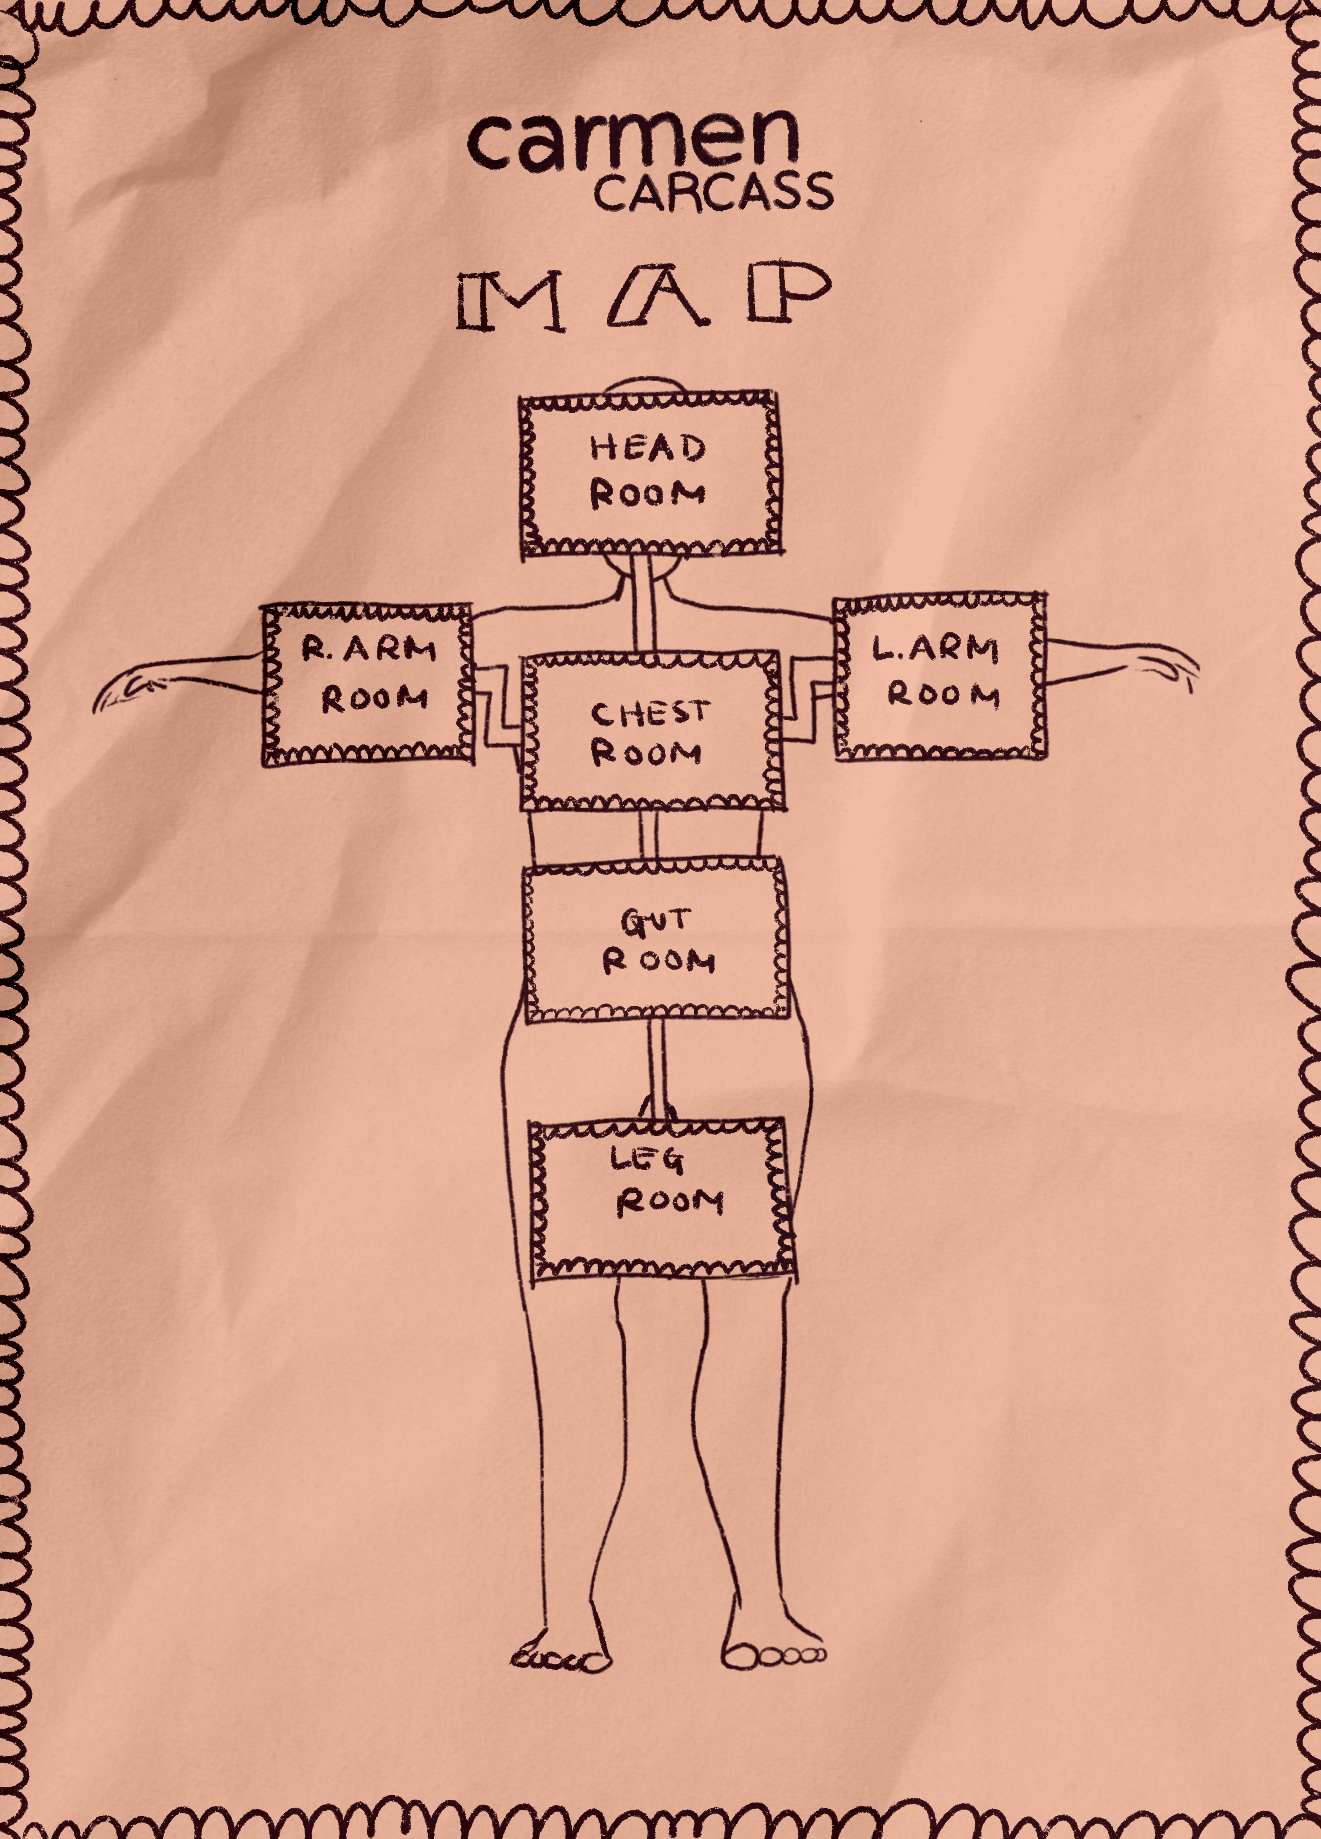 carmen
CARCASS
MAP
HEAD
ROOM
R. ARM
ROOM
L. ARM
ROOM
CHEST
ROOM
GUT
ROOM
LEG
ROOM